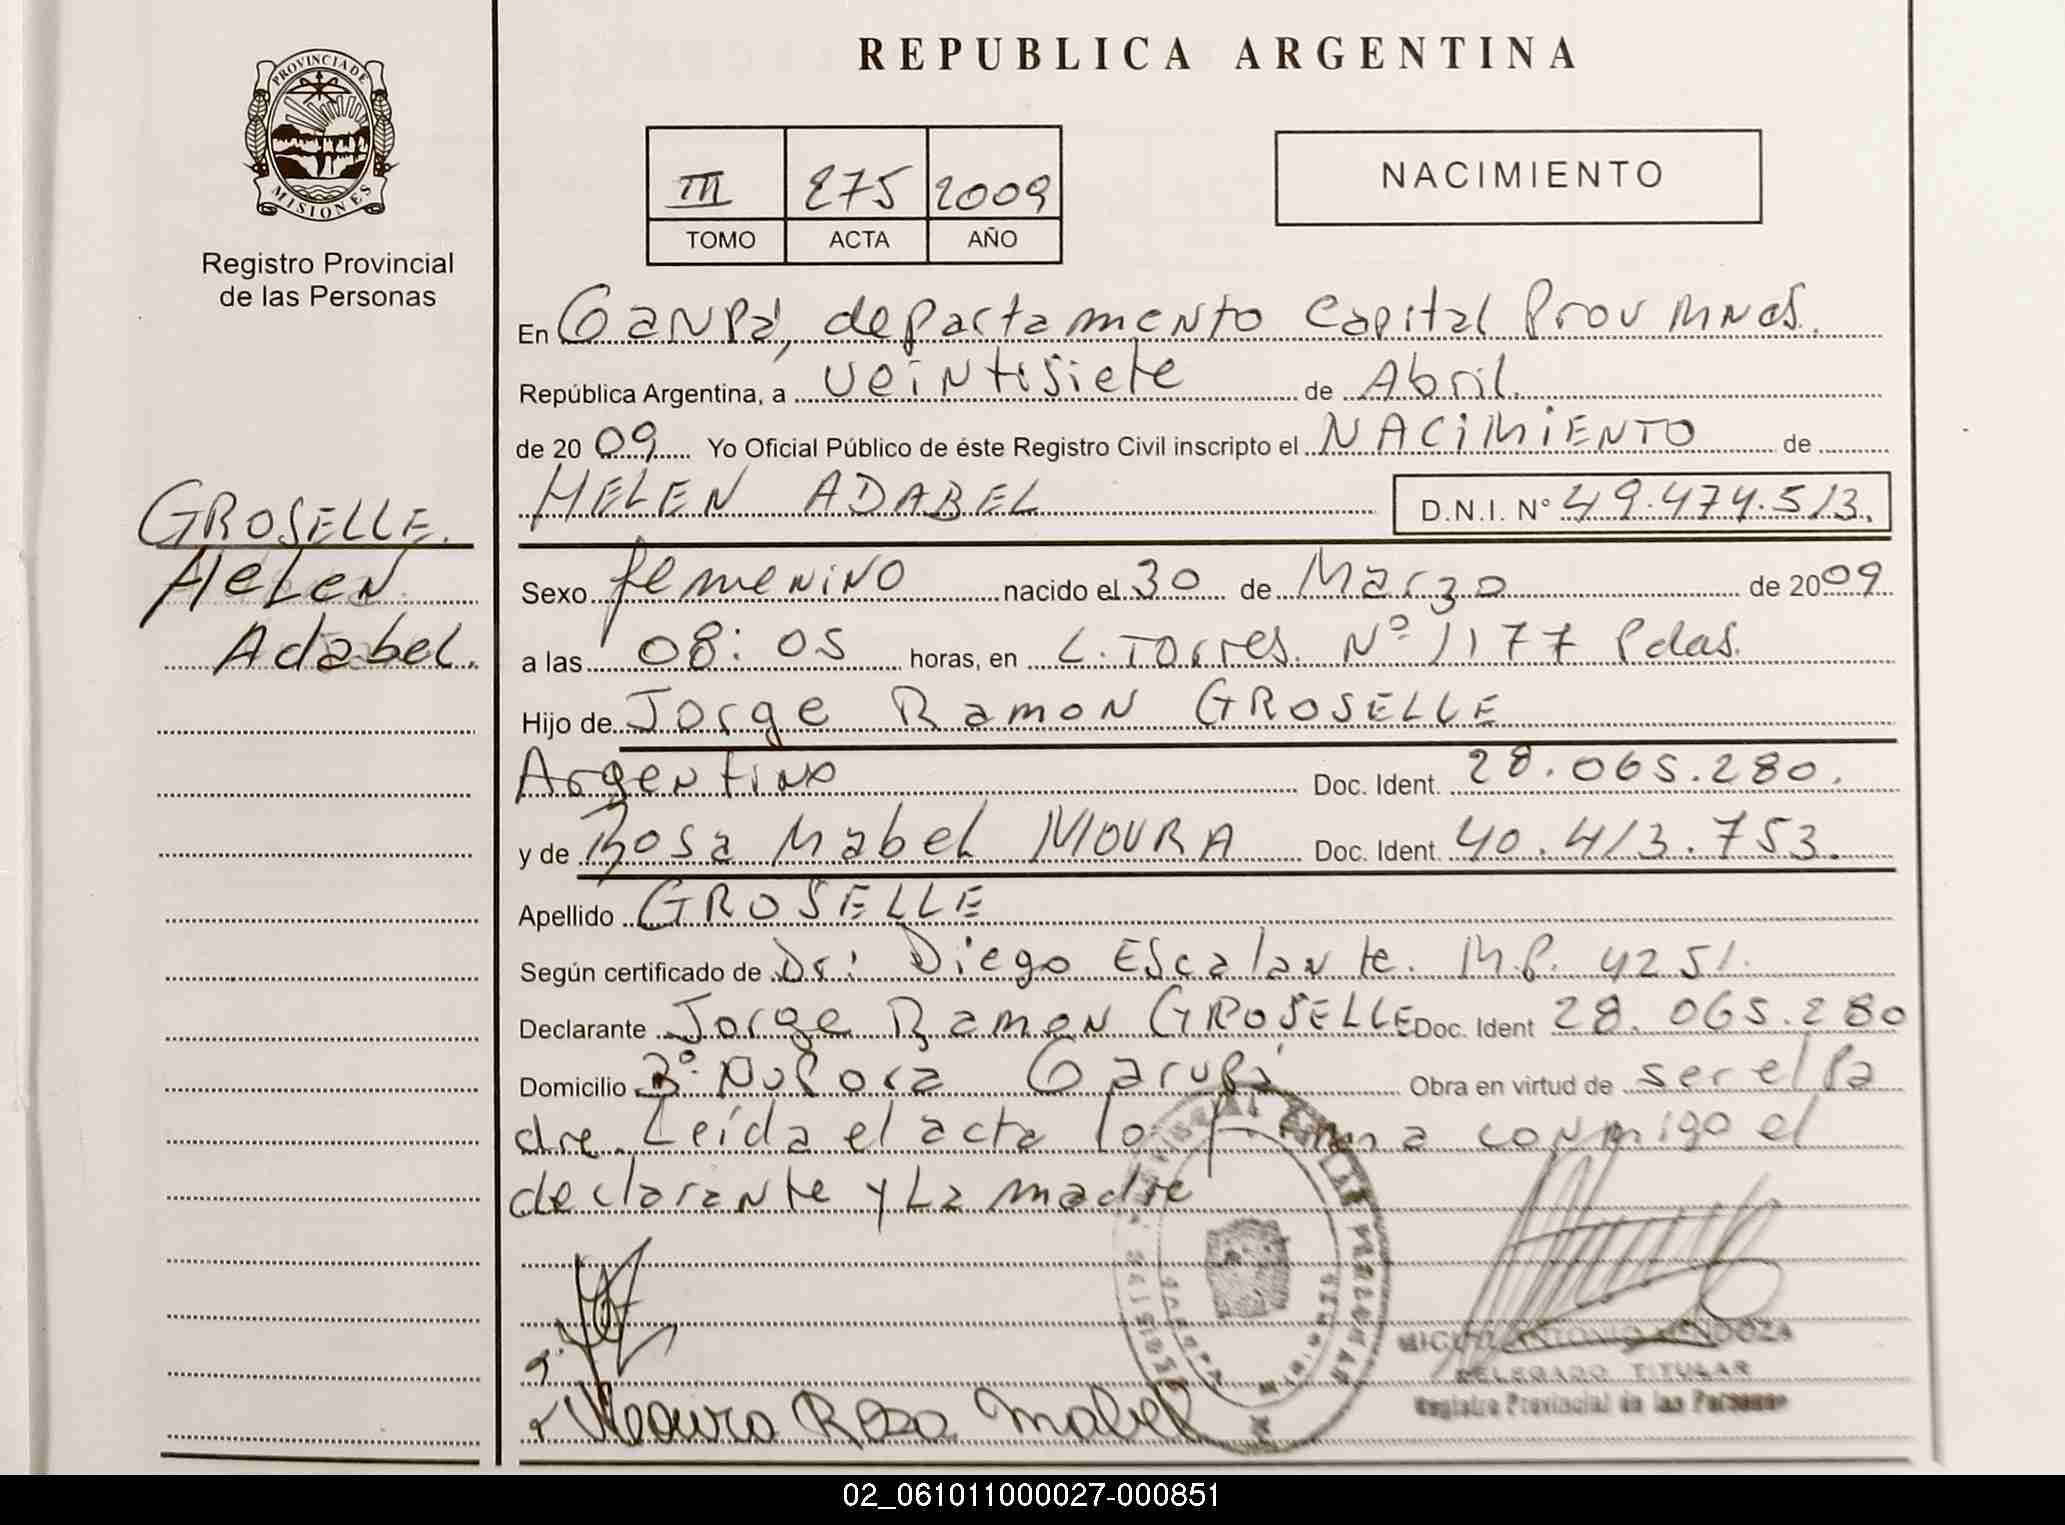 REPUBLICA ARGENTINA
PROVINCIA DE
MISIONES
Registro Provincial
de las Personas
III 275 2009
TOMO ACTA AÑO
NACIMIENTO
En Garupá, departamento Capital Prov Mnes.
República Argentina, a veintisiete de Abril.
de 2009 Yo Oficial Público de éste Registro Civil inscripto el NACIMIENTO de
HELEN ADABEL D.N.I. Nº 49.474.513.
GROSELLE.
Helen
Adabel.
Sexo femenino nacido el 30 de Marzo de 2009
a las 08:05 horas, en L. Torres. Nº 1177 Pdas.
Hijo de Jorge Ramon GROSELLE
Argentino Doc. Ident. 28.065.280.
y de Rosa Mabel MOURA Doc. Ident. 40.413.753.
Apellido GROSELLE
Según certificado de Dr: Diego Escalante. M.P. 4251.
Declarante Jorge Ramon GROSELLE Doc. Ident 28.065.280
Domicilio Garupá Obra en virtud de ser el Pa
dre. Leída el acta lo firma conmigo el
declarante y La madre
Moura Rosa Mabel
MIGUEL ANTONIO MENDOZA
DELEGADO TITULAR
Registro Provincial de las Personas
02_061011000027-000851